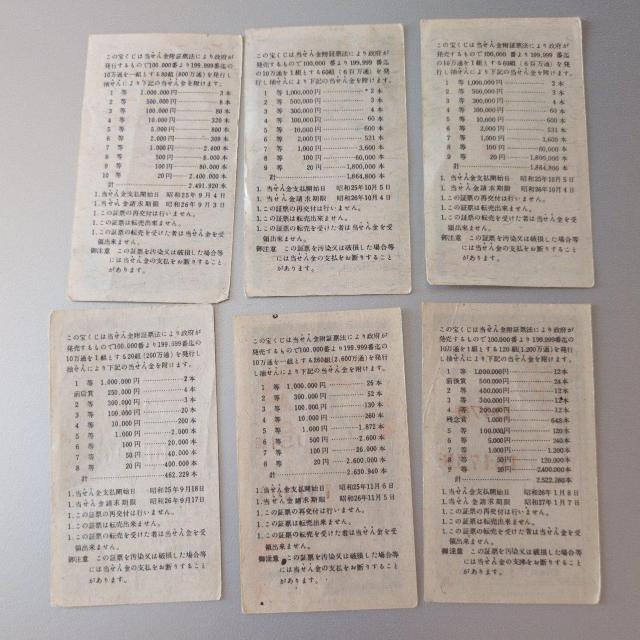 この宝くじは当せん金附証票法により政府が
発行するもので100.000番より199.999番迄
の10万通を一組とする80組(800万通)を発行し
抽せんにより下記の当せん金を附けます。
1 等 1.000.000円 3本
2 等 500.000円 8本
3 等 100.000円 80本
4 等 10.000円 320本
5 等 5.000円 800本
6 等 2.000円
7 等 1.000円 2.400本
8 等 500円 8.000本
9 等 100円 80.000本
10 等 20円 2.400.000本
計 2.491.920本
1.当せん金支払開始日 昭和25年9月4日
1.当せん金請求期限 昭和26年9月3日
1.この証票の再交付は行いません。
1.この証票は転売出来ません。
1.この証票の転売を受けた者は当せん金を受
領出来ません。
御注意 この証票を汚染又は破損した場合等
には当せん金の支払をお断りすること
があります。
この宝くじは当せん金附証票法により政府が
発売するもので100,000 番より199,999 番迄
の10万通を1組とする60組(6百万通)を発行し
抽せんにより下記の当せん金を附けます。
1 等 1,000,000円 2本
2 等 500,000円 3本
3 等 300,000円 4本
4 等 100,000円 60本
5 等 10,000円 600本
6 等 2,000円 531本
7 等 1,000円 3,600本
8 等 100円 60,000本
9 等 20円 1,800,000本
計 1,864,800本
1. 当せん金支払開始日 昭和25年10月5日
1. 当せん金請求期限 昭和26年10月4日
1.この証票の再交付は行いません。
1.この証票は転売出来ません。
1.この証票の転売を受けた者は当せん金を受
領出来ません。
御注意 この証票を汚染又は破損した場合等
には当せん金の支払をお断りすること
があります。
この宝くじは当せん金附証票法により政府が
発売するもので100,000 番より199,999 番迄
の10万通を1組とする60組(6百万通)を発
行し抽せんにより下記の当せん金を附けます。
1 等 1,000,000円 2本
2 等 500,000円 3本
3 等 300,000円 4本
4 等 100,000円 60本
5 等 10,000円 600本
6 等 2,000円 531本
7 等 1,000円 3,600本
8 等 100円 60,000本
9 等 20円 1,800,000本
計 1,864,800本
1. 当せん金支払開始日 昭和25年10月5日
1. 当せん金請求期限 昭和26年10月4日
1.この証票の再交付は行いません。
1.この証票は転売出来ません。
1.この証票の転売を受けた者は当せん金を受
領出来ません。
御注意 この証票を汚染又は破損した場合等
には当せん金の支払をお断りすること
があります。
この宝くじは当せん金附証票法により政府が
発売するもので100.000番より199.999番迄の
10万通を1組とする20組(200万通)を発行し
抽せんにより下記の当せん金を附けます。
1 等 1.000.000円 2本
前後賞 250.000円 4本
2 等 500.000円 3本
3 等 100.000円 20本
4 等 10.000円 200本
5 等 1.000円 2.000本
6 等 100円 20.000本
7 等 50円 40.000本
8 等 20円 400.000本
計 462.229本
1.当せん金支払開始日 昭和25年9月18日
1.当せん金請求期限 昭和26年9月17日
1.この証票の再交付は行いません。
1.この証票は転売出来ません。
1.この証票の転売を受けた者は当せん金を受
領出来ません。
御注意 この証票を汚染又は破損した場合等
には当せん金の支払をお断りすること
があります。
この宝くじは当せん金附証票法により政府が
発売するもので100.000番より199.999番迄の
10万通を一組とする260組(2,600万通)を発行し
抽せんにより下記の当せん金を附けます。
1 等 1.000.000円 26本
2 等 300.000円 52本
3 等 100.000円 130本
4 等 10.000円 260本
5 等 1.000円 1.872本
6 等 500円 2.600本
7 等 100円 26.000本
8 等 20円 2.600.000本
計 2.630.940本
1.当せん金支払開始日 昭和25年11月6日
1.当せん金請求期限 昭和26年11月5日
1.この証票の再交付は行いません。
1.この証票は転売出来ません。
1.この証票の転売を受けた者は当せん金を受
領出来ません。
御注意 この証票を汚染又は破損した場合等
には当せん金の支払をお断りすること
があります。
この宝くじは当せん金附証票法により政府が
発売するもので100.000番より199.999番迄の
10万通を1組とする120組(1,200万通)を発行
し抽せんにより下記の当せん金を附けます。
1 等 1.000.000円 12本
前後賞 500.000円 24本
2 等 400.000円 12本
3 等 300.000円 12本
4 等 200.000円 12本
残念賞 1.000円 648本
5 等 100.000円 120本
6 等 5.000円 240本
7 等 1.000円 1.200本
8 等 50円 120.000本
9 等 20円 2.400.000本
計 2.522.280本
1.当せん金支払開始日 昭和26年1月8日
1.当せん金請求期限 昭和27年1月7日
1.この証票の再交付は行いません。
1.この証票は転売出来ません。
1.この証票の転売を受けた者は当せん金を受
領出来ません。
御注意 この証票を汚染又は破損した場合等
には当せん金の支払をお断りすること
があります。